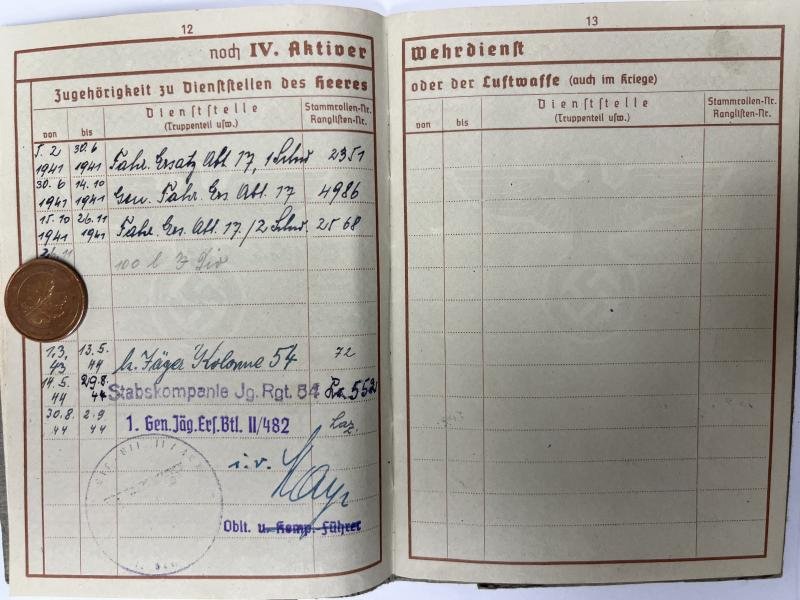 12
noch IV. Aktiver
Zugehörigkeit zu Dienststellen des Heeres
von bis Dienststelle (Truppenteil usw.) Stammrollen-Nr. Ranglisten-Nr.
5.2 30.6
1941 1941 Fahr. Ersatz Abt 17, 2351
30.6 14.10
1941 1941 Gen. Fahr. Ers Abt. 17 4986
15.10 26.11
1941 1941 Fahr. Ers. Abt. 17./2 2568
100 l. J Div
1.3. 13.5.
43 44 Jäger Kolonne 54 72
14.5. 29.8.
44 44 Stabskompanie Jg. Rgt. 54
30.8. 2.9
44 44 1. Gen.Jäg.Ers.Btl. II/482 Laz.
i.V.
Oblt. u. Komp.-Führer
13
Wehrdienst
oder der Luftwaffe (auch im Kriege)
von bis Dienststelle (Truppenteil usw.) Stammrollen-Nr. Ranglisten-Nr.